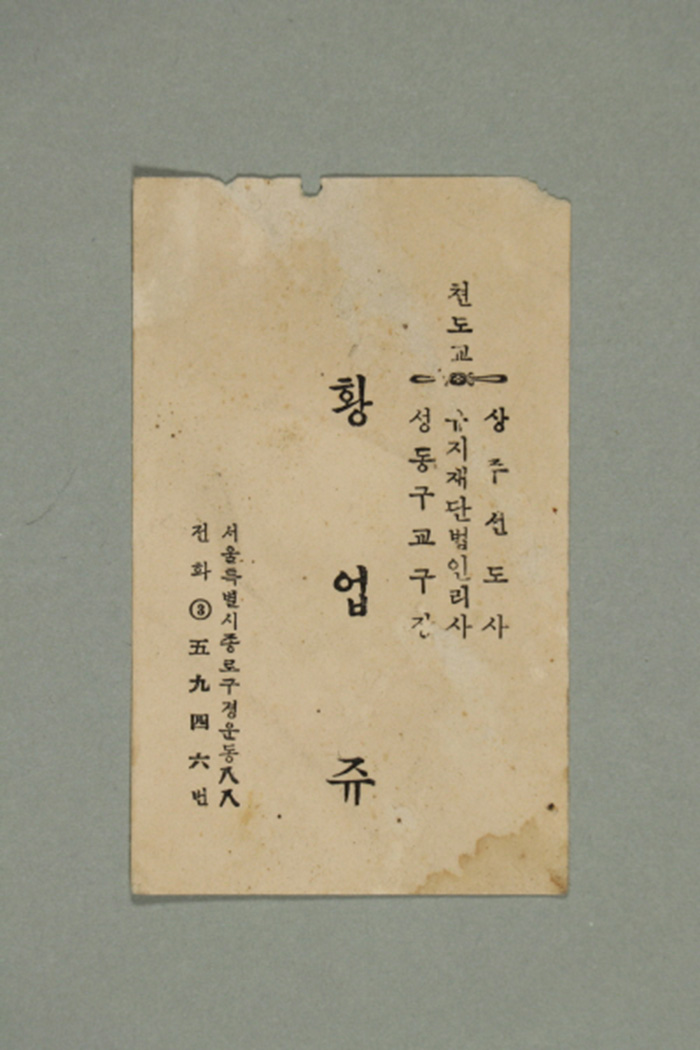 천도교
상주선도사
유지재단법인리사
성동구교구장
황업쥬
서울특별시종로구경운동八八
전화③五九四六번